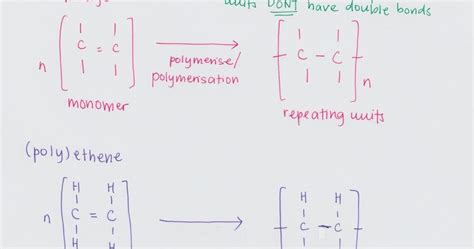 units DONT have double bonds
C = C
C - C
n
polymerise/
polymerisation
n
monomer
repeating units
(poly)ethene
H H
H H
n
C = C
C - C
H H